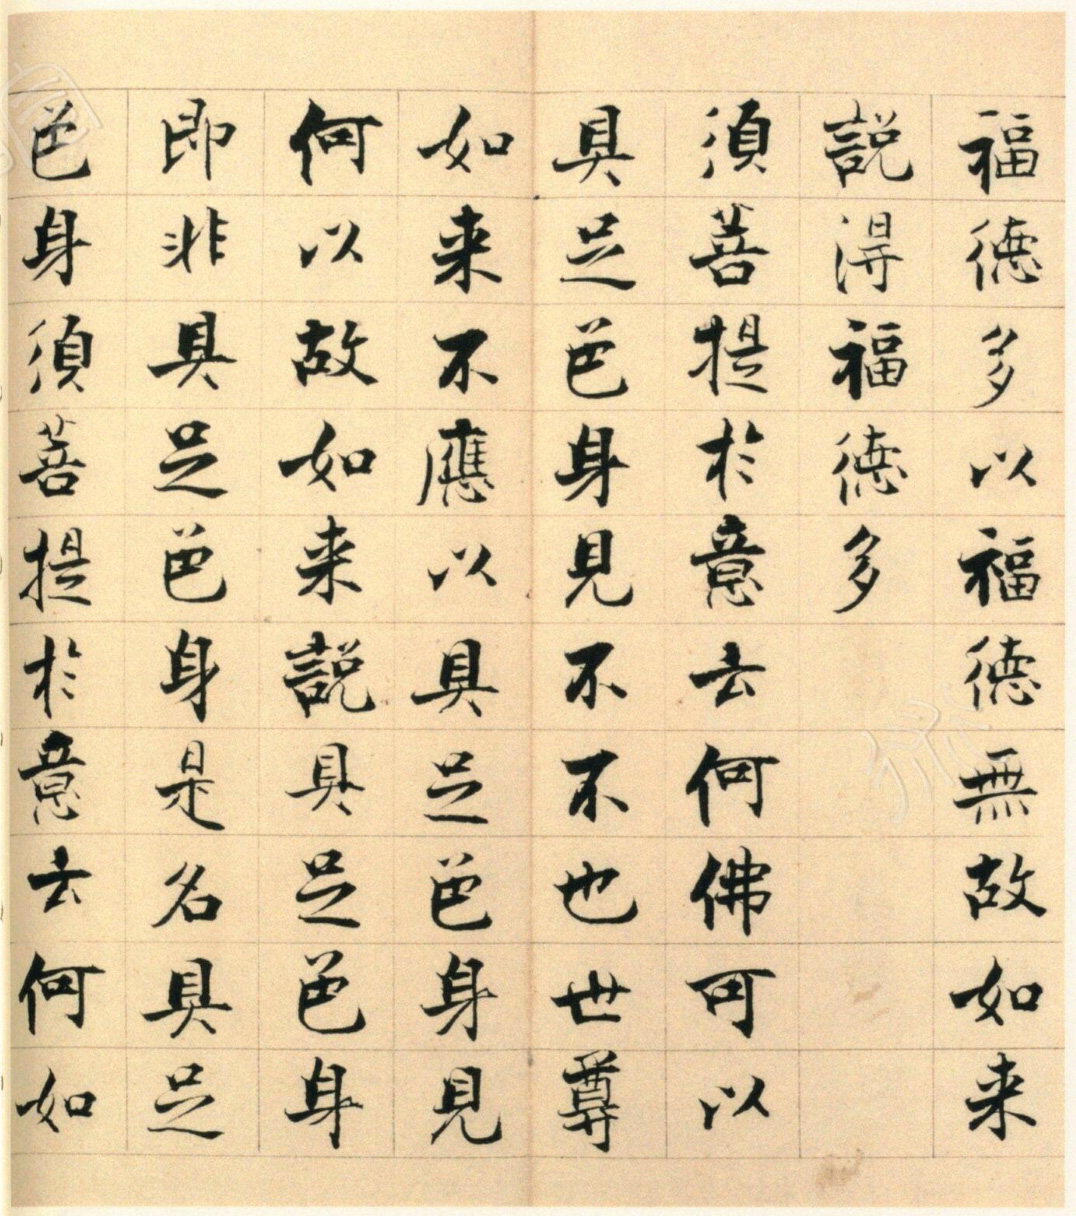 福德多以福德無故如来
説得福德多
須菩提於意云何佛可以
具足色身見不不也世尊
如来不應以具足色身見
何以故如来説具足色身
即非具足色身是名具足
色身須菩提於意云何如